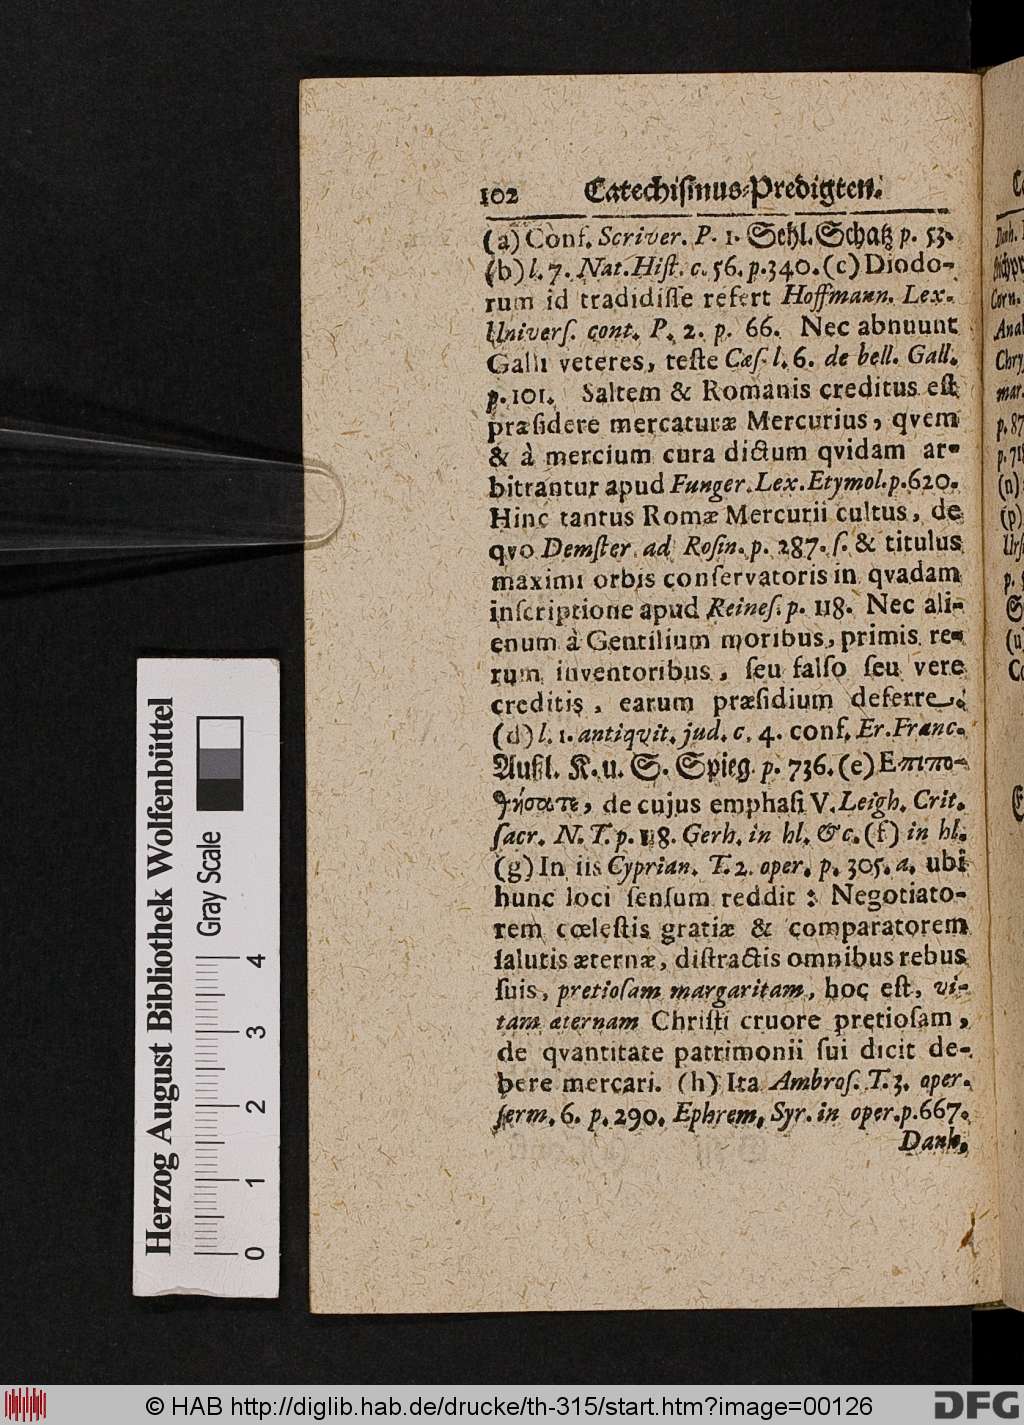 102 Catechiſmus-Predigten.
(a) Conf. Scriver. P. 1. Sehl. Schatz p. 53.
(b) l. 7. Nat. Hiſt. c. 56. p. 340. (c) Diodo-
rum id tradidiſſe refert Hoffmann. Lex.
Univerſ. cont. P. 2. p. 66. Nec abnuunt
Galli veteres, teſte Cæſ. l. 6. de bell. Gall.
p. 101. Saltem & Romanis creditus eſt
præſidere mercaturæ Mercurius, qvem
& à mercium cura dictum qvidam ar-
bitrantur apud Funger. Lex. Etymol. p. 620.
Hinc tantus Romæ Mercurii cultus, de
qvo Demſter ad Roſin. p. 287. ſ. & titulus
maximi orbis conſervatoris in qvadam
inſcriptione apud Reineſ. p. 118. Nec ali-
enum à Gentilium moribus, primis re-
rum inventoribus, ſeu falſo ſeu vere
creditis, earum præſidium deferre.
(d) l. 1. antiqvit. jud. c. 4. conf. Er. Franc.
Außl. K. u. S. Spieg. p. 736. (e) Επιπο-
θήσατε, de cujus emphaſi V. Leigh. Crit.
ſacr. N. T. p. 118. Gerh. in hl. &c. (f) in hl.
(g) In iis Cyprian. T. 2. oper. p. 305. a. ubi
hunc loci ſenſum reddit: Negotiato-
rem cœleſtis gratiæ & comparatorem
ſalutis æternæ, diſtractis omnibus rebus
ſuis, pretioſam margaritam, hoc eſt, vi-
tam æternam Chriſti cruore pretioſam,
de qvantitate patrimonii ſui dicit de-
bere mercari. (h) Ita Ambroſ. T. 3. oper.
ſerm. 6. p. 290. Ephrem. Syr. in oper. p. 667.
Danh.
Herzog August Bibliothek Wolfenbüttel
Gray Scale
0 1 2 3 4
© HAB http://diglib.hab.de/drucke/th-315/start.htm?image=00126
DFG